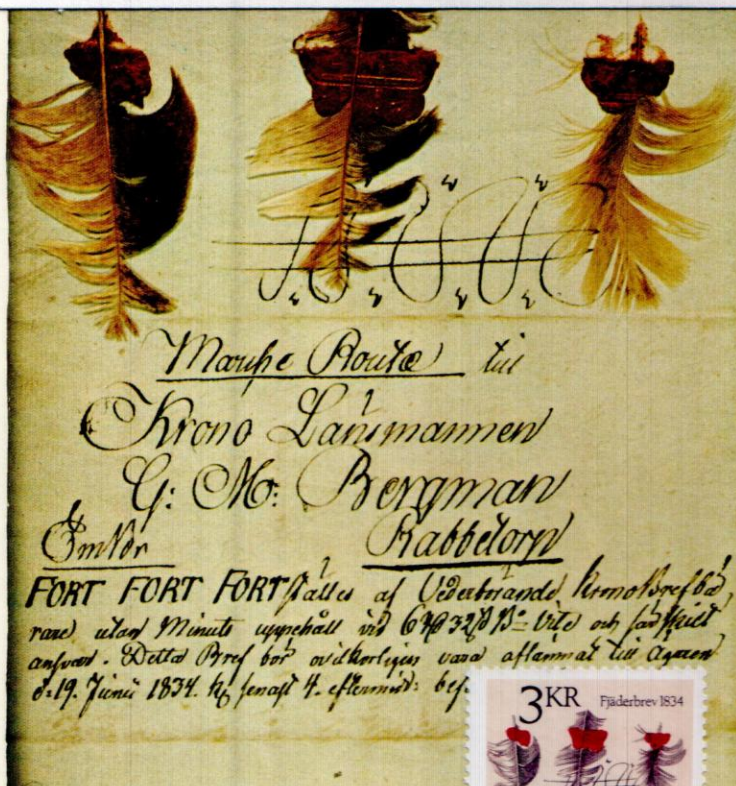 Marche Route till
Krono Länsmannen
G: M: Bergman
Rabbetorp
FORT FORT FORT ställes af Vederbörande KronoBrefbä
rare, utan Minuts uppehåll vid 6 32 B:o Vite och särskilt
answar. Detta Bref bör ovilkorligen vara aflämnat till Ägaren
d: 19. Junii 1834. kl senast 4. eftermid: bef.
3KR Fjäderbrev 1834